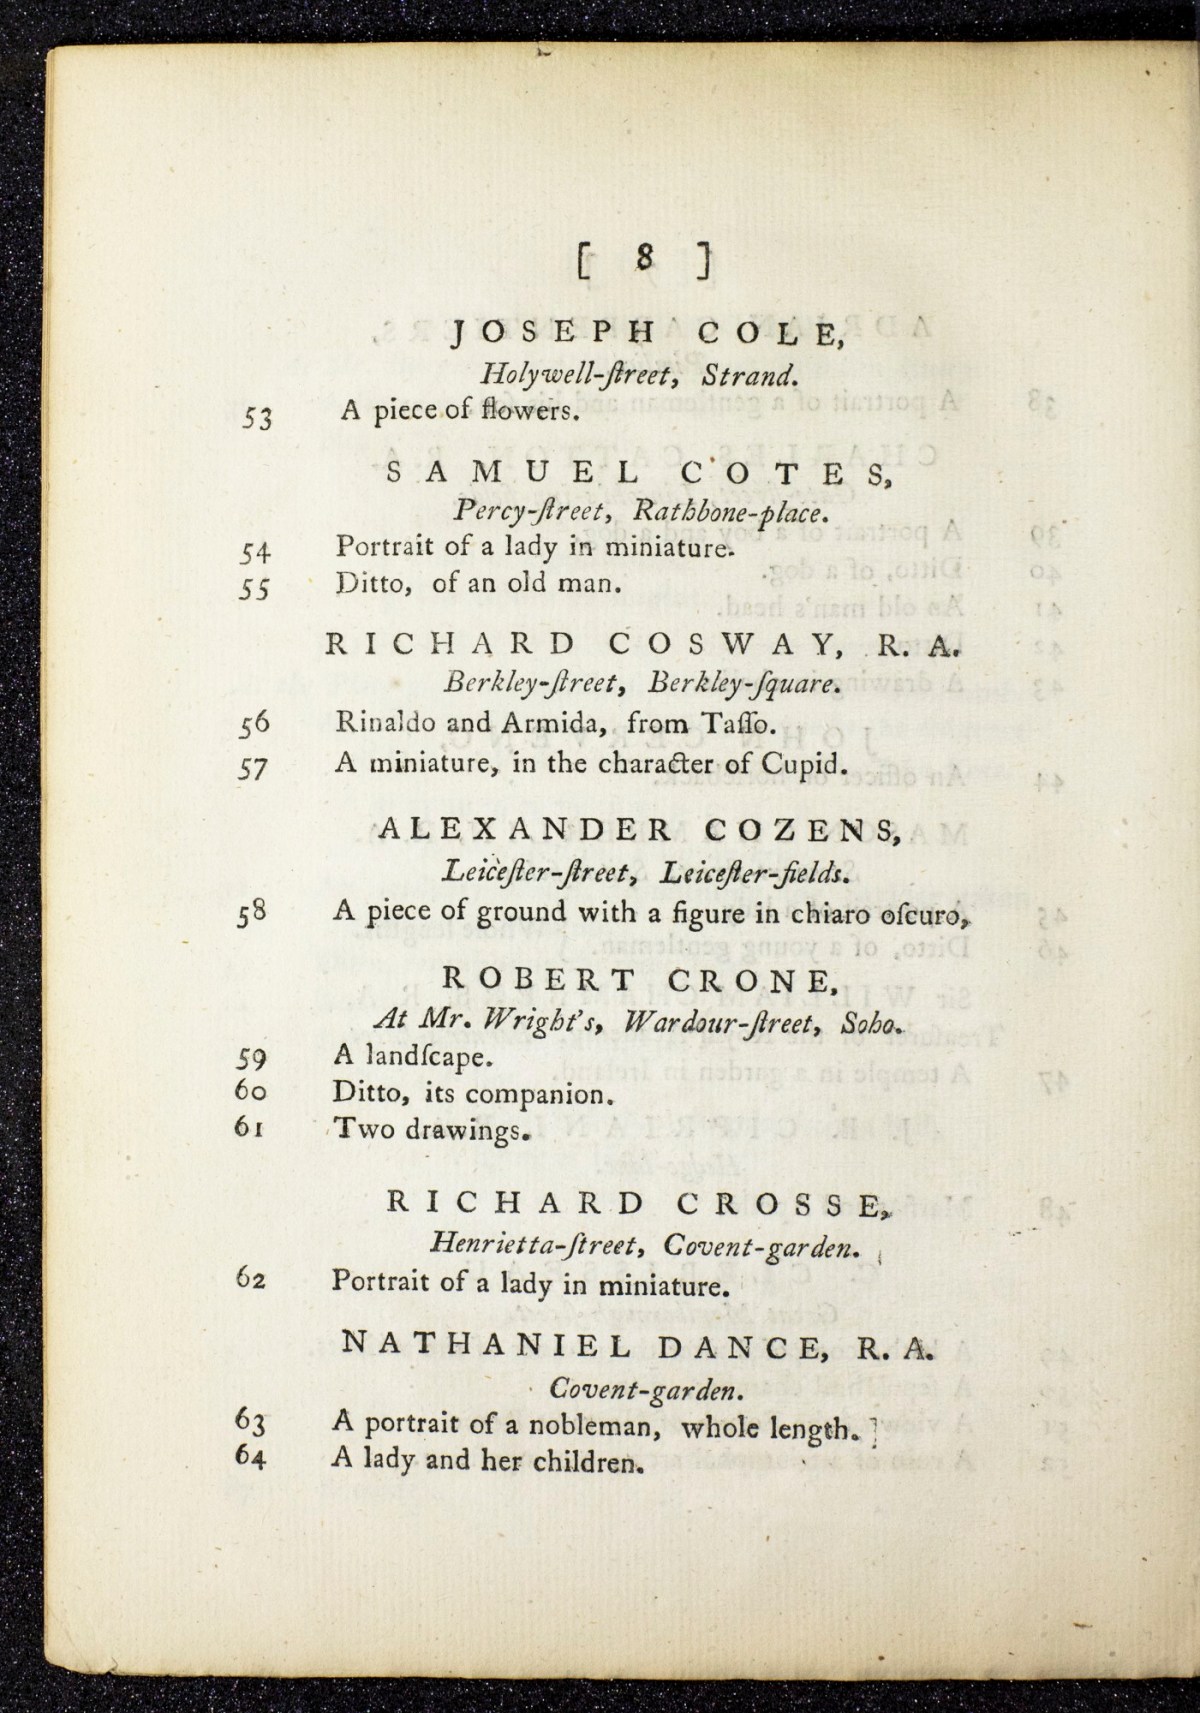 [ 8 ]
JOSEPH COLE,
Holywell-ſtreet, Strand.
53 A piece of flowers.
SAMUEL COTES,
Percy-ſtreet, Rathbone-place.
54 Portrait of a lady in miniature.
55 Ditto, of an old man.
RICHARD COSWAY, R. A.
Berkley-ſtreet, Berkley-ſquare.
56 Rinaldo and Armida, from Taſſo.
57 A miniature, in the character of Cupid.
ALEXANDER COZENS,
Leiceſter-ſtreet, Leiceſter-fields.
58 A piece of ground with a figure in chiaro oſcuro,
ROBERT CRONE,
At Mr. Wright's, Wardour-ſtreet, Soho.
59 A landſcape.
60 Ditto, its companion.
61 Two drawings.
RICHARD CROSSE,
Henrietta-ſtreet, Covent-garden.
62 Portrait of a lady in miniature.
NATHANIEL DANCE, R. A.
Covent-garden.
63 A portrait of a nobleman, whole length.
64 A lady and her children.